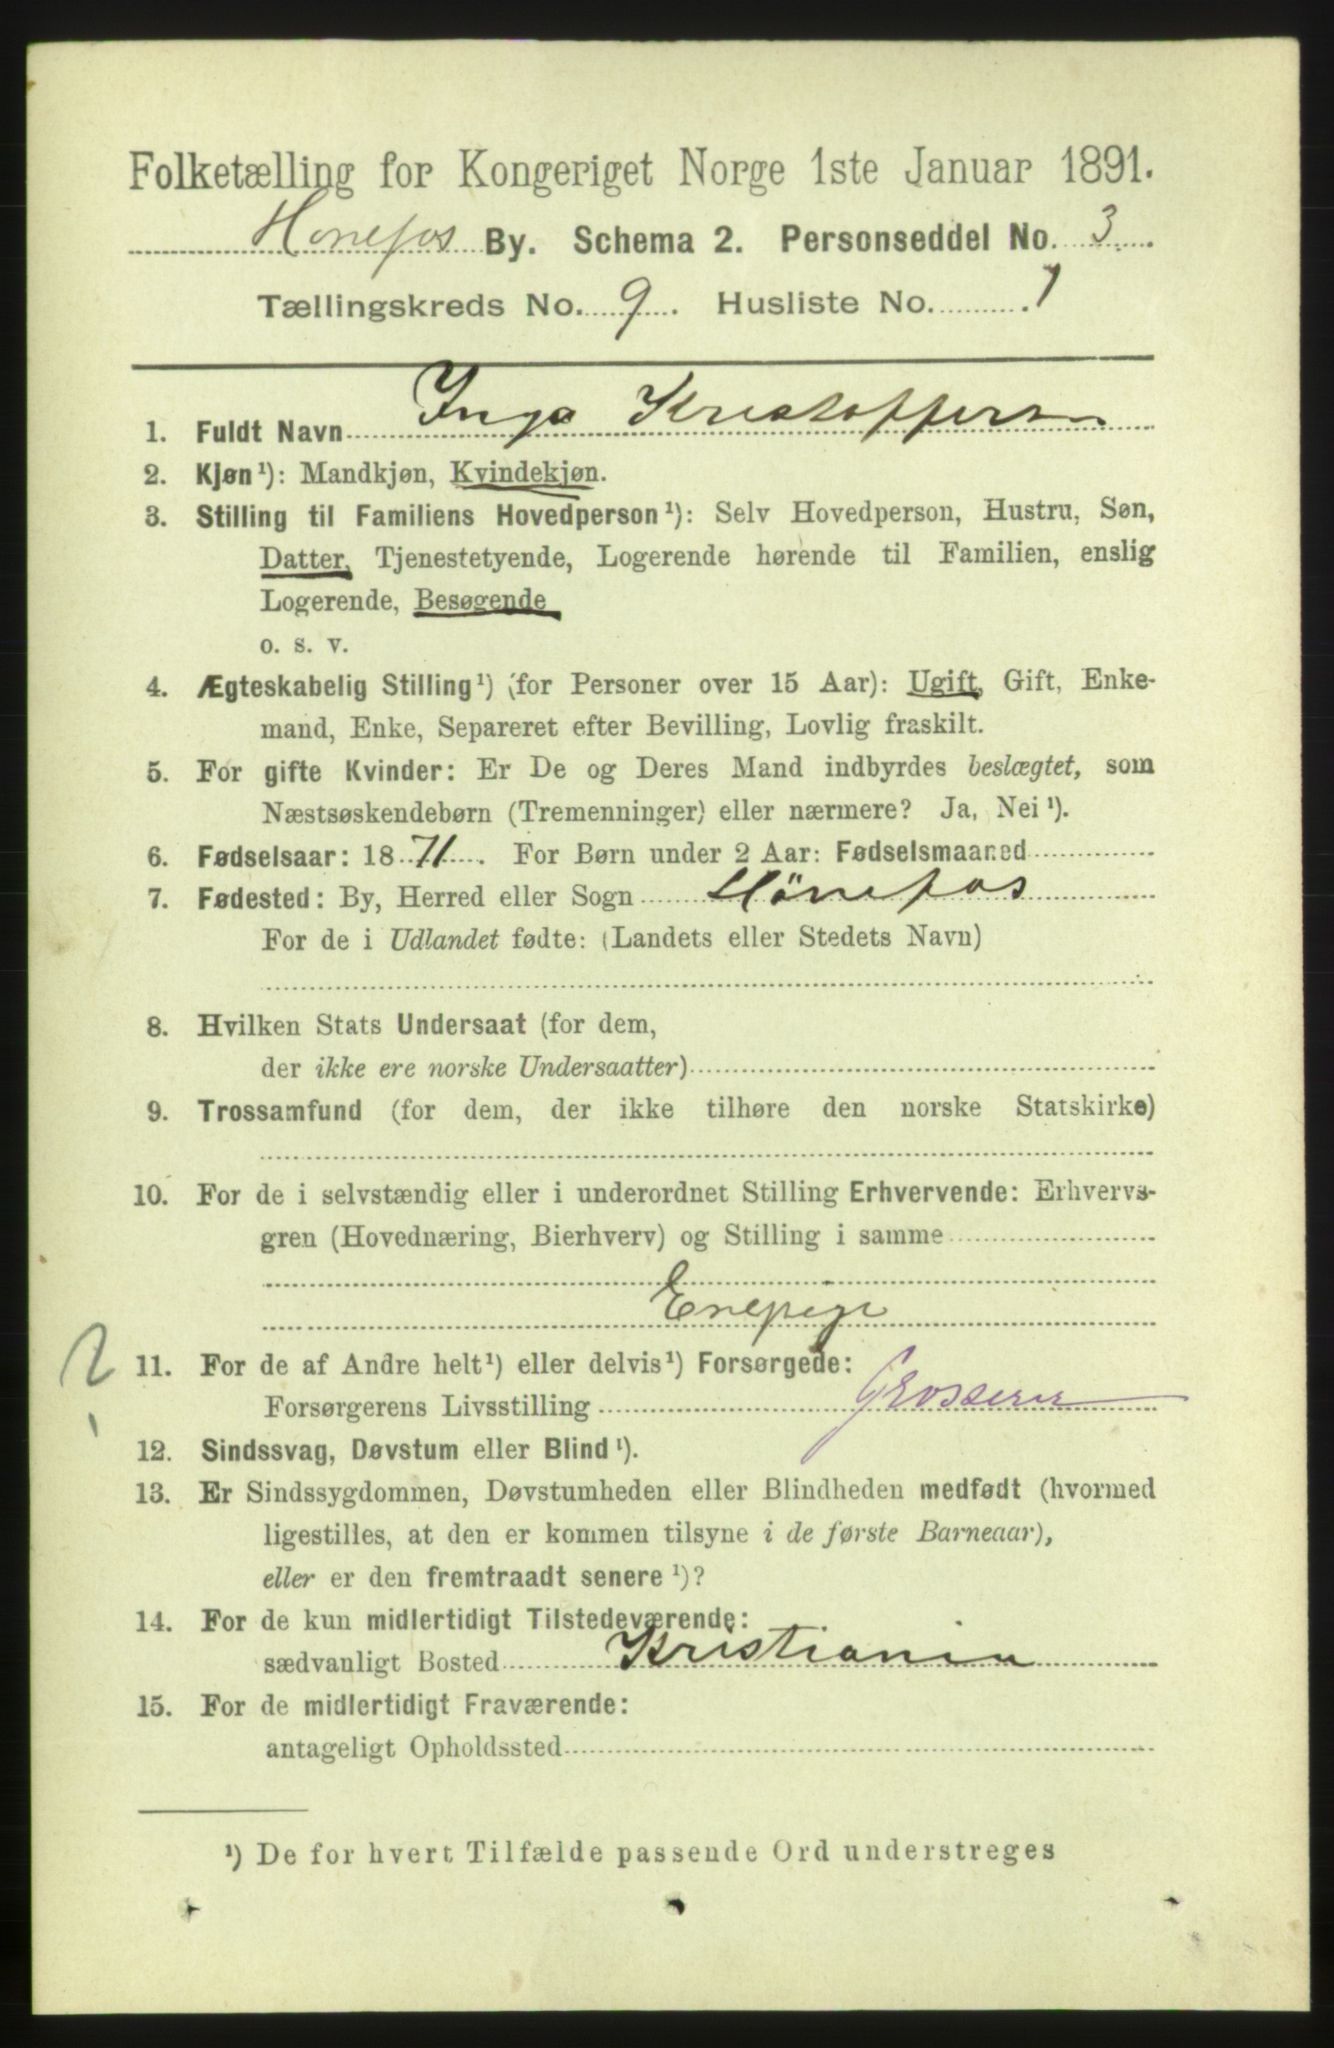 Folketælling for Kongeriget Norge 1ste Januar 1891.
Hönefos By. Schema 2. Personseddel No. 3
Tællingskreds No. 9. Husliste No. 1
1. Fuldt Navn Inga Kristoffersen
2. Kjøn ¹): Mandkjøn, Kvindekjøn.
3. Stilling til Familiens Hovedperson ¹): Selv Hovedperson, Hustru, Søn,
Datter, Tjenestetyende, Logerende hørende til Familien, enslig
Logerende, Besøgende
o. s. v.
4. Ægteskabelig Stilling ¹) (for Personer over 15 Aar): Ugift, Gift, Enke-
mand, Enke, Separeret efter Bevilling, Lovlig fraskilt.
5. For gifte Kvinder: Er De og Deres Mand indbyrdes beslægtet, som
Næstsøskendebørn (Tremenninger) eller nærmere? Ja, Nei ¹).
6. Fødselsaar: 1871. For Børn under 2 Aar: Fødselsmaaned
7. Fødested: By, Herred eller Sogn Hönefos
For de i Udlandet fødte: (Landets eller Stedets Navn)
8. Hvilken Stats Undersaat (for dem,
der ikke ere norske Undersaatter)
9. Trossamfund (for dem, der ikke tilhøre den norske Statskirke)
10. For de i selvstændig eller i underordnet Stilling Erhvervende: Erhvervs-
gren (Hovednæring, Bierhverv) og Stilling i samme
Enepige
11. For de af Andre helt ¹) eller delvis ¹) Forsørgede:
Forsørgerens Livsstilling Grosserer
12. Sindssvag, Døvstum eller Blind ¹).
13. Er Sindssygdommen, Døvstumheden eller Blindheden medfødt (hvormed
ligestilles, at den er kommen tilsyne i de første Barneaar),
eller er den fremtraadt senere ¹)?
14. For de kun midlertidigt Tilstedeværende:
sædvanligt Bosted Kristiania
15. For de midlertidigt Fraværende:
antageligt Opholdssted
¹) De for hvert Tilfælde passende Ord understreges